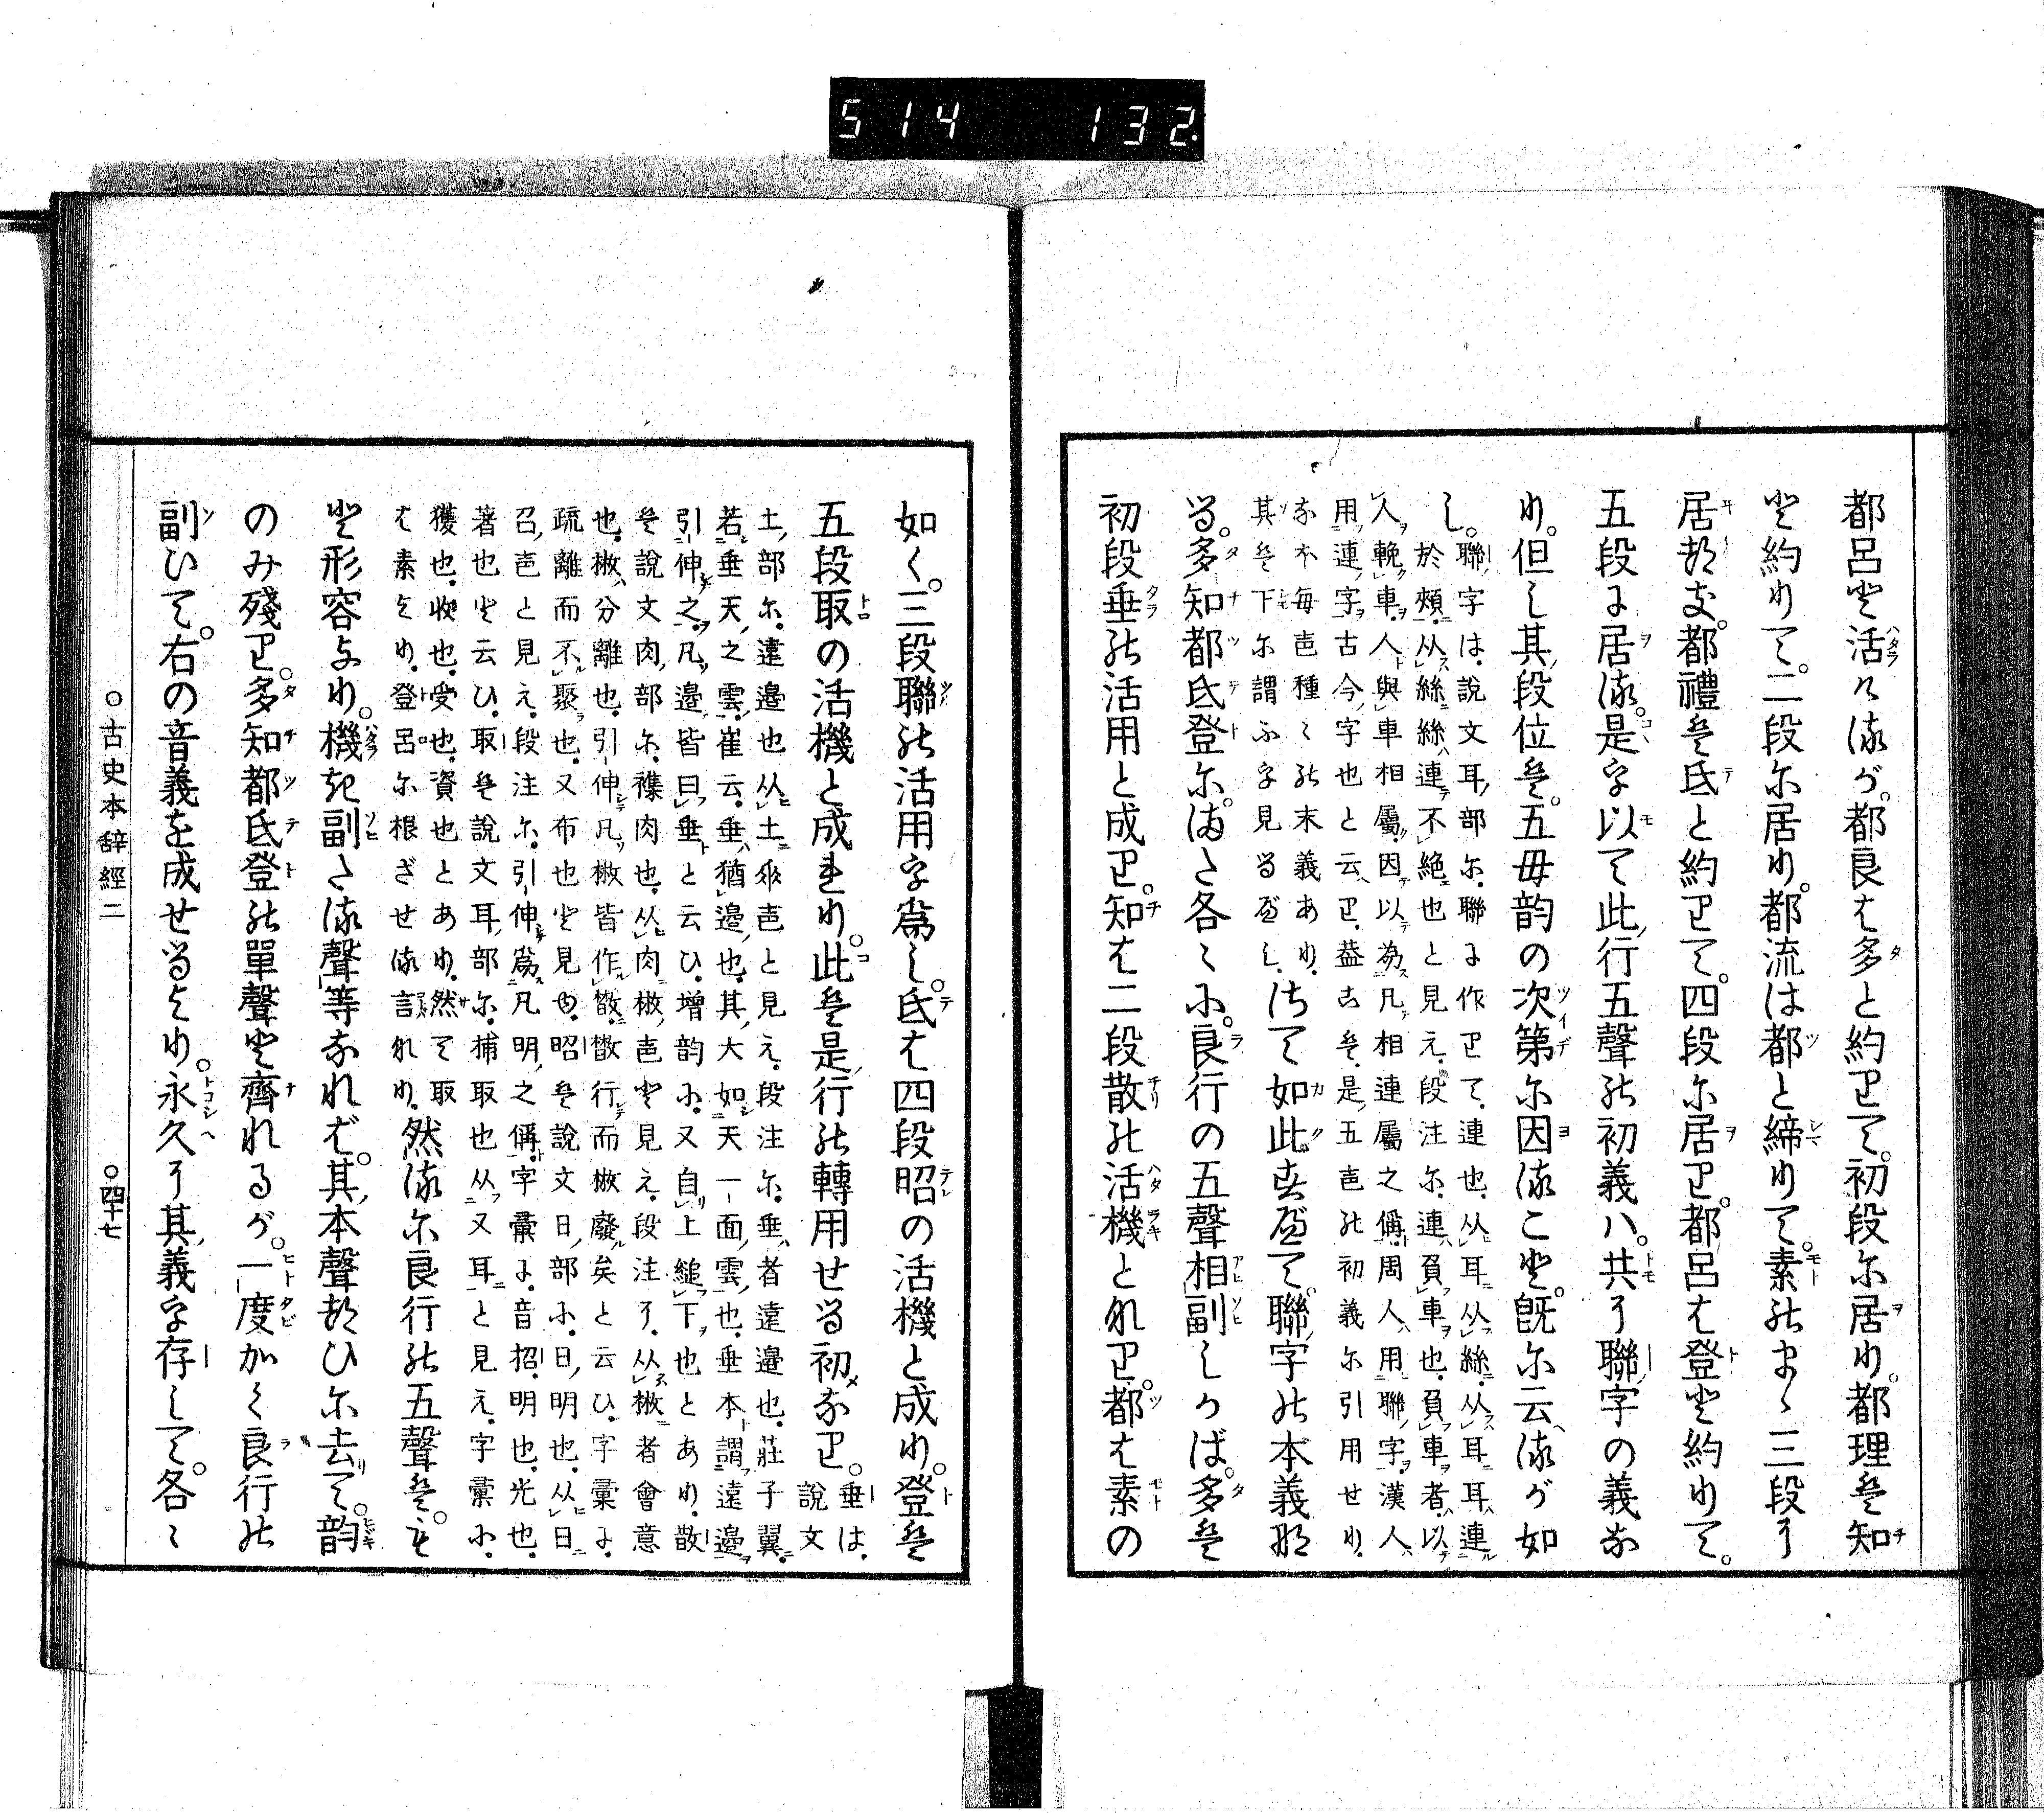 514 132
都呂と活ける。が都良は多と約りて。初段に居り。都理は知
と約りて。二段に居り。都流は都と締りて。素のまゝ三段に
居。都禮は氐と約りて。四段に居り。都呂は登と約りて。
五段に居る。是を以て此行五聲の初義ハ。共に聯字の義な
り。但し其段位は。五母韵の次第に因ること。既に云るが如
し。聯字は。説文耳部に。聯に作りて。連也。从耳从絲。从耳耳連
於頰。从絲絲連不絶也と見え。段注に。連負車也。負車者。以
人輓車。人與車相屬。因以為凡相連屬之偁。周人用聯字。漢人
用連字。古今字也と云り。蓋こは。是五音の初義に引用せり。
なほ毎音種々の末義あり。
其は下に謂ふを見るべし。さて如此すべて。聯字の本義な
る。多知都氐登に。また各々に。良行の五聲相副しかば。多は
初段垂の活用と成り。知は二段散の活機となれり。都は素の
如く。三段聯の活用を爲し。氐は四段昭の活機と成り。登は
五段取の活機と成れり。此は是行の轉用せる初なり。垂は。説文
土部に。遠邊也从土𠂹音と見え。段注に。垂者遠邊也。莊子翼
若垂天之雲。崔云。垂猶邊也。其大如天一面雲也。垂本謂遠邊。
引伸之。凡邊皆曰垂と云ひ。增韵に。又自上縋下也とあり。散
は説文肉部に。襍肉也。从肉㪔音と見え。段注に。从㪔者會意
也。㪔分離也。引伸凡㪔皆作散。散行而㪔廢矣と云ひ。字彙に。
疏離而不聚也。又布也と見ゆ。昭は説文日部に。日明也。从日
召音と見え。段注に。引伸爲凡明之偁。字彙に。音招。明也。光也。
著也と云ひ。取は説文耳部に。捕取也从又耳と見え。字彙に。
獲也。收也。受也。資也とあり。然て取
は素より。登呂に根ざせる言なり。然るに良行の五聲は。も
と形容より。機き副たる聲等なれば。其本聲なひに去て。韵
のみ殘り。多知都氐登の單聲と齊れるが。一度かく良行の
副ひて。右の音義を成せるより。永久に其義を存して。各々
○古史本辭經二 ○四十七